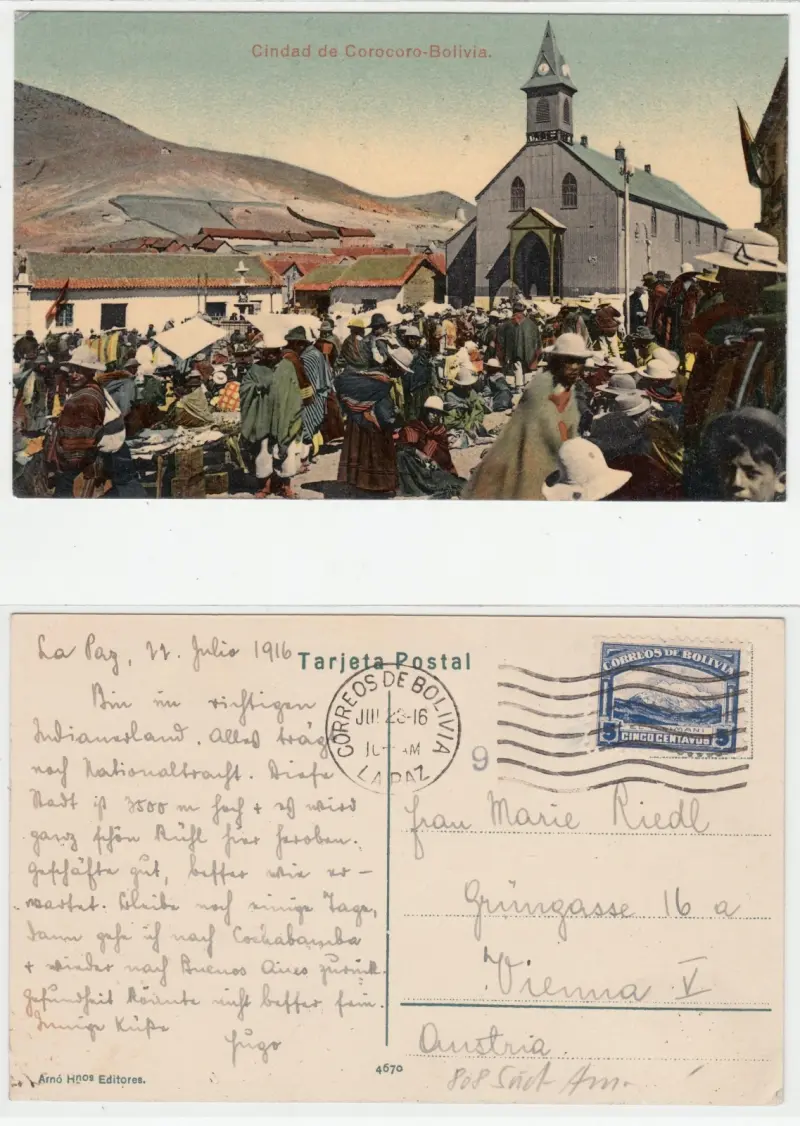 Cindad de Corocoro-Bolivia.
La Paz, 22. Julio 1916
Tarjeta Postal
Bin im richtigen
Indianerland. Alles trägt
noch Nationaltracht. Diese
Stadt ist 3500 m hoch + es wird
ganz schön kühl hier heroben.
Geschäfte gut, besser wie er-
wartet. Bleibe noch einige Tage,
dann gehe ich nach Cochabamba
+ wieder nach Buenos Aires zurück.
Gesundheit könnte nicht besser sein.
Innige Küße
Hugo
Arnó Hnos Editores.
4670
CORREOS DE BOLIVIA
JUL 23-16
10- AM
LA PAZ
9
CORREOS DE BOLIVIA
5 CINCO CENTAVOS 5
Frau Marie Riedl
Grüngasse 16 a
Vienna V
Austria.
808 Süd Am.